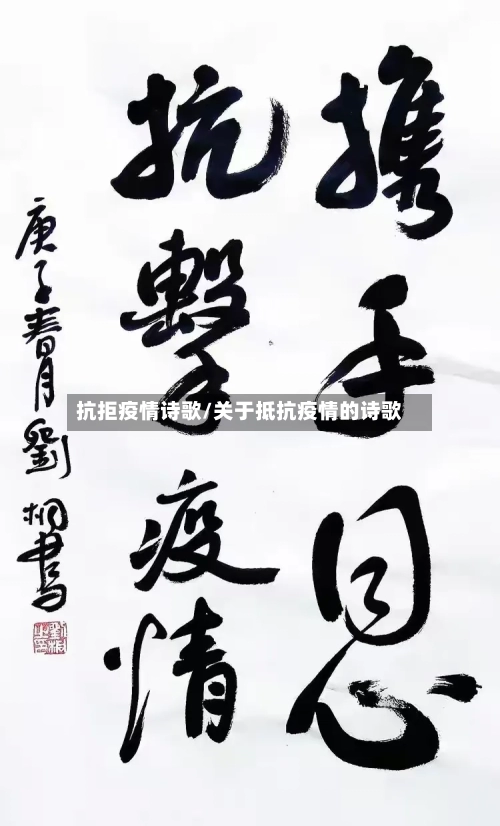 携手同心
抗擊疫情
庚子春月劉桐書
抗拒疫情诗歌/关于抵抗疫情的诗歌